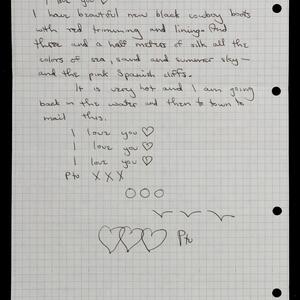 I love you ♡
I have beautiful new black cowboy boots
with red trimming and lining. And
three and a half metres of silk all the
colors of sea, sand and summer sky —
and the pink Spanish cliffs.
It is very hot and I am going
back in the water and then to town to
mail this.
I love you ♡
I love you ♡
I love you ♡
Pto XXX
Pto